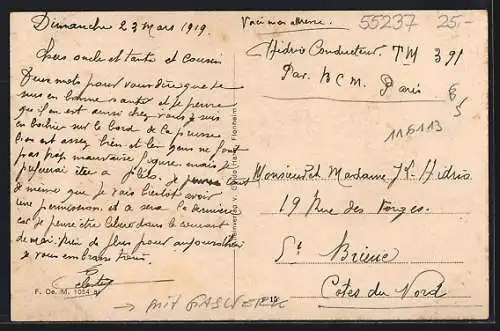 Dimanche 23 Mars 1919.
Chers oncle et tante et cousin
Deux mots pour vous dire que je
suis en bonne santé et je pense
que s'en est ainsi chez vous je suis
en Boche sur le bord de la
l'on est assez bien et les gens ne font
pas trop mauvaise figure mais je
préférerai être a je pense tout
de même que je vais bientôt avoir
une permission et ce sera la dernière
car je pense être libéré dans le courant
de mai. Rien de plus pour aujourd'hui
je vous embrasse tous.
F. De. M. 1054 a
→ mit GASWERK
Voici mon adresse.
55237 25.-
Hidrio Conducteur TM 391
Par. B C M. Paris
116113
Monsieur et Madame Hidrio
19 Rue des Forges.
St Brieuc
Côtes du Nord